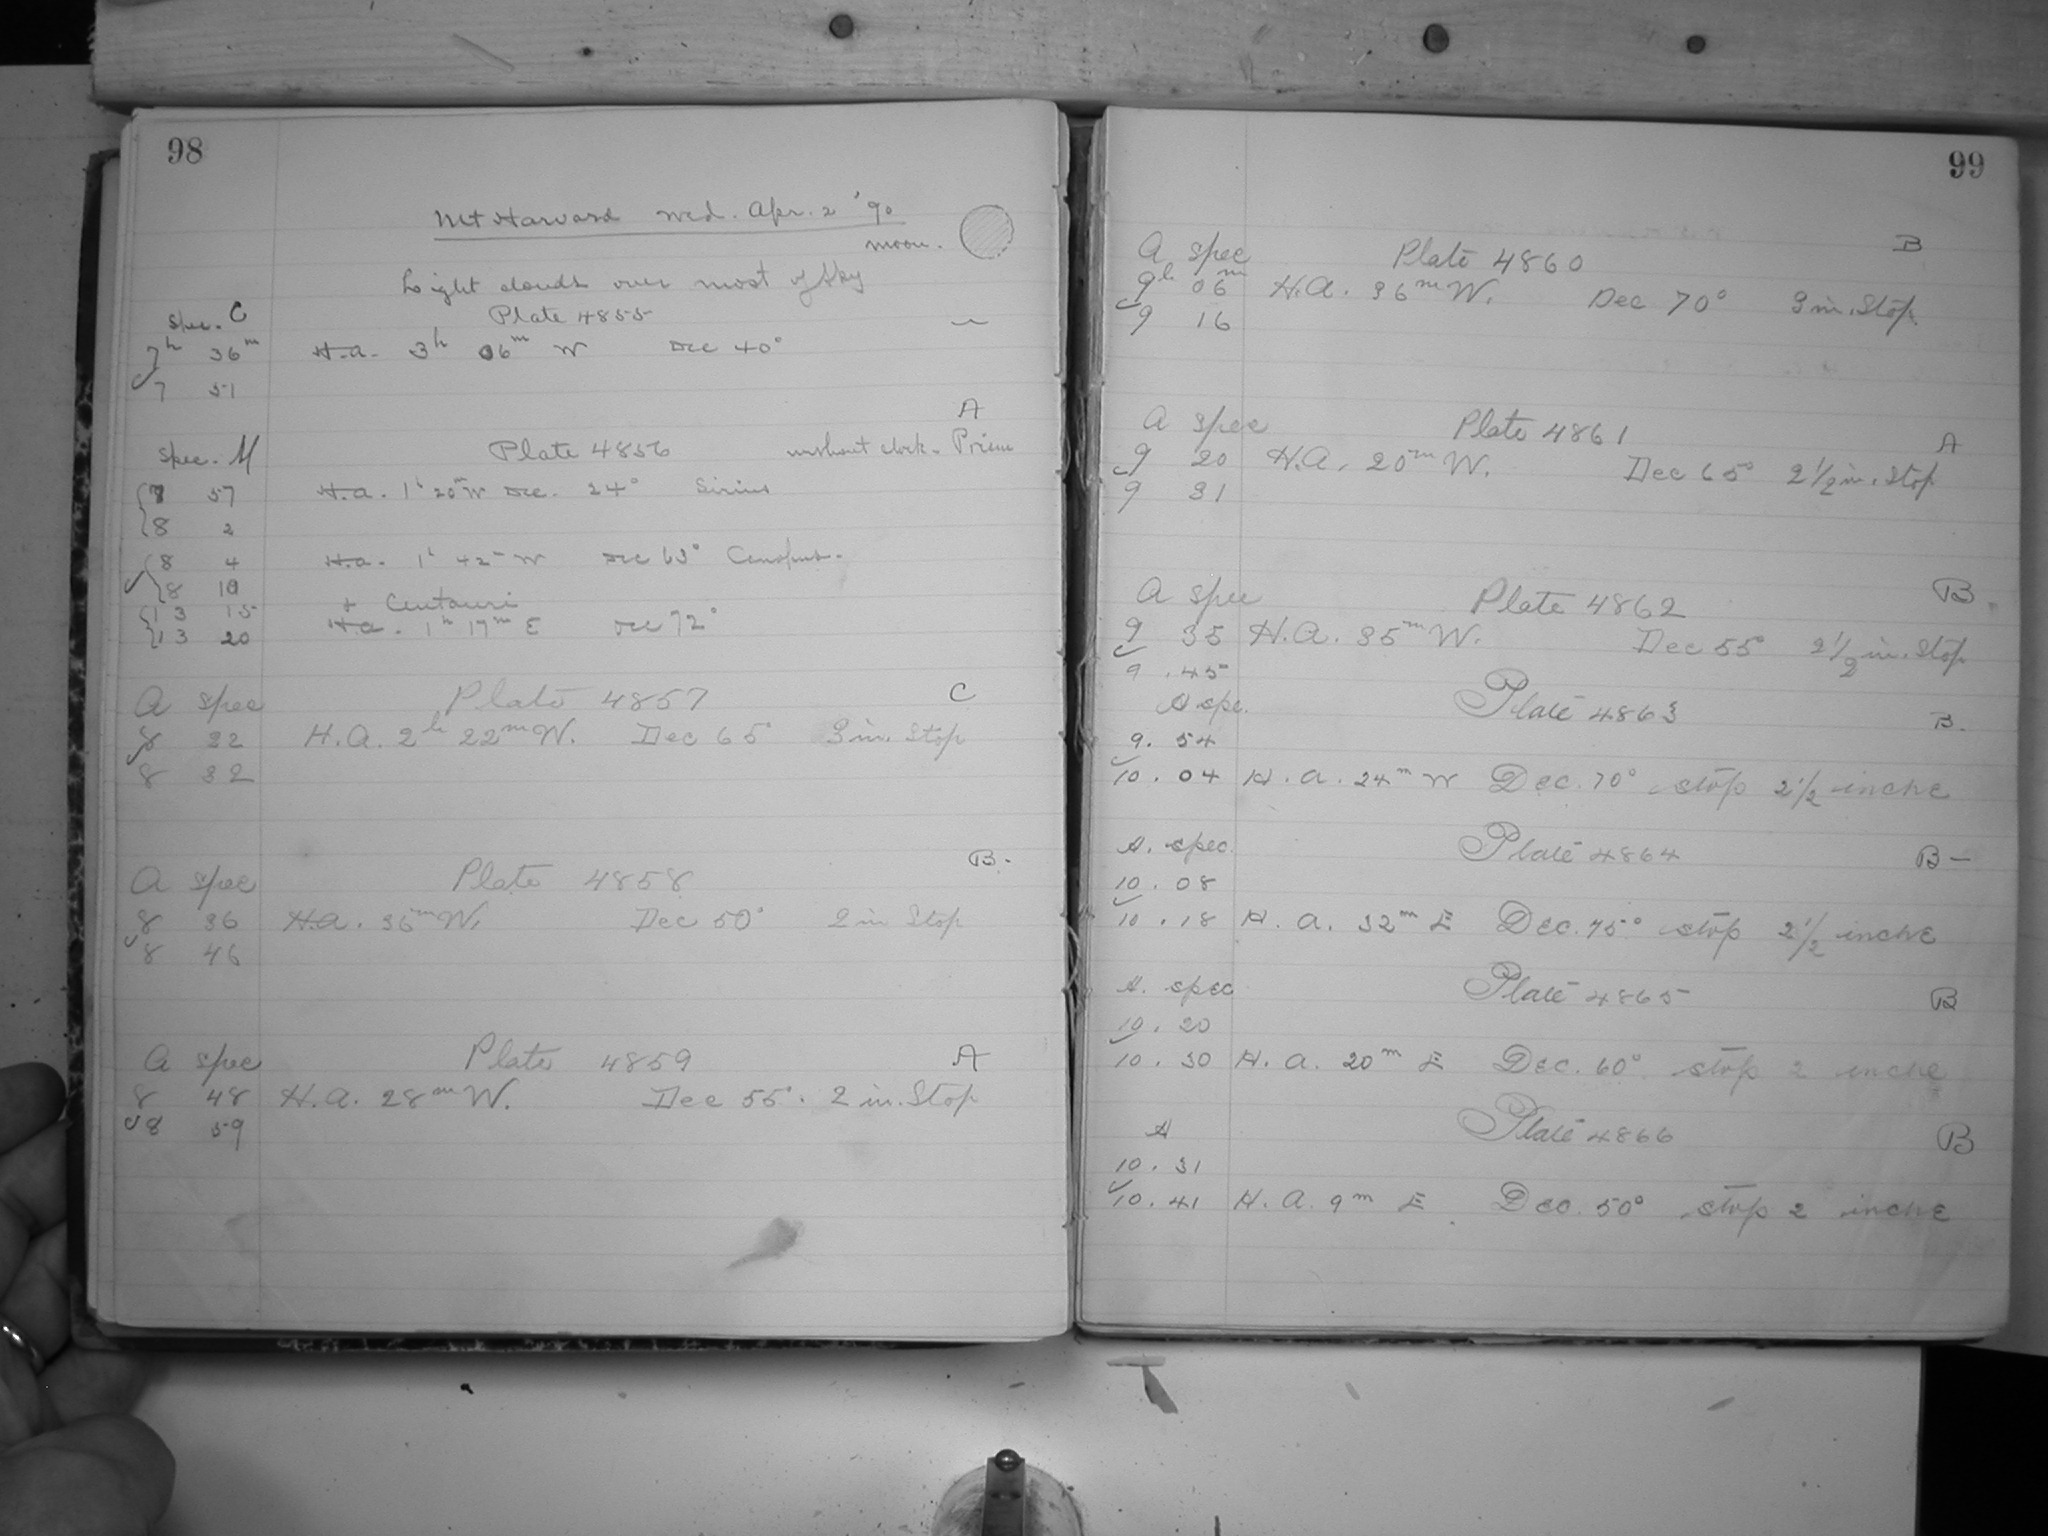 98
Mt Harvard Wed. Apr. 2 '90
moon.
Light clouds over most of sky
Spec. C Plate 4855
7h 36m H.a. 3h 06m W Dec 40°
7 51
A
Spec. M Plate 4856 without clock. Prism
7 57 H.a. 1h 20m W Dec. 24° Sirius
8 2
8 4 H.a. 1h 42m W Dec 63° Canopus.
8 10
13 15 Centauri
13 20 H.a. 1h 17m E Dec 72°
A spec Plate 4857 C
8 22 H.A. 2h 22m W. Dec 65° 3 in. Stop
8 32
B.
A spec Plate 4858
8 36 H.a. 36m W. Dec 50° 2 in Stop
8 46
A spec Plate 4859 A
8 48 H.A. 28m W. Dec 55°. 2 in. Stop
8 59
99
A spec Plate 4860 B
9h 06m H.A. 36m W. Dec 70° 3 in. Stop.
9 16
A spec Plate 4861 A
9 20 H.A. 20m W. Dec 65° 2 1/2 in. Stop
9 31
A spec Plate 4862 B.
9 35 H.A. 35m W. Dec 55° 2 1/2 in. Stop
9 .45
A spe. Plate 4863 B.
9. 54
10. 04 H. a. 24m W Dec. 70° stop 2 1/2 inche
A. spec. Plate 4864 B-
10. 08
10. 18 H. a. 32m E Dec. 75° stop 2 1/2 inche
A. spec Plate 4865 B
10. 20
10. 30 H. a. 20m E Dec. 60° stop 2 inche
A Plate 4866 B
10. 31
10. 41 H. a. 9m E Dec. 50° stop 2 inche